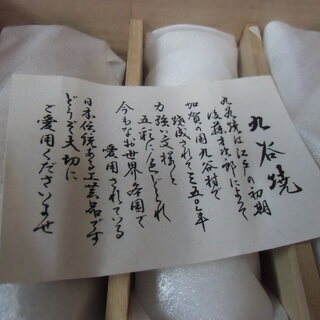 九谷焼
九谷焼は江戸の初期
後藤才次郎によって
加賀の国九谷村で
焼成されて三五〇年
力強い文様と
五彩に色どられ
今もなお世界各国で
愛用されている
日本伝統ある工芸品です
どうぞ大切に
ご愛用くださいませ